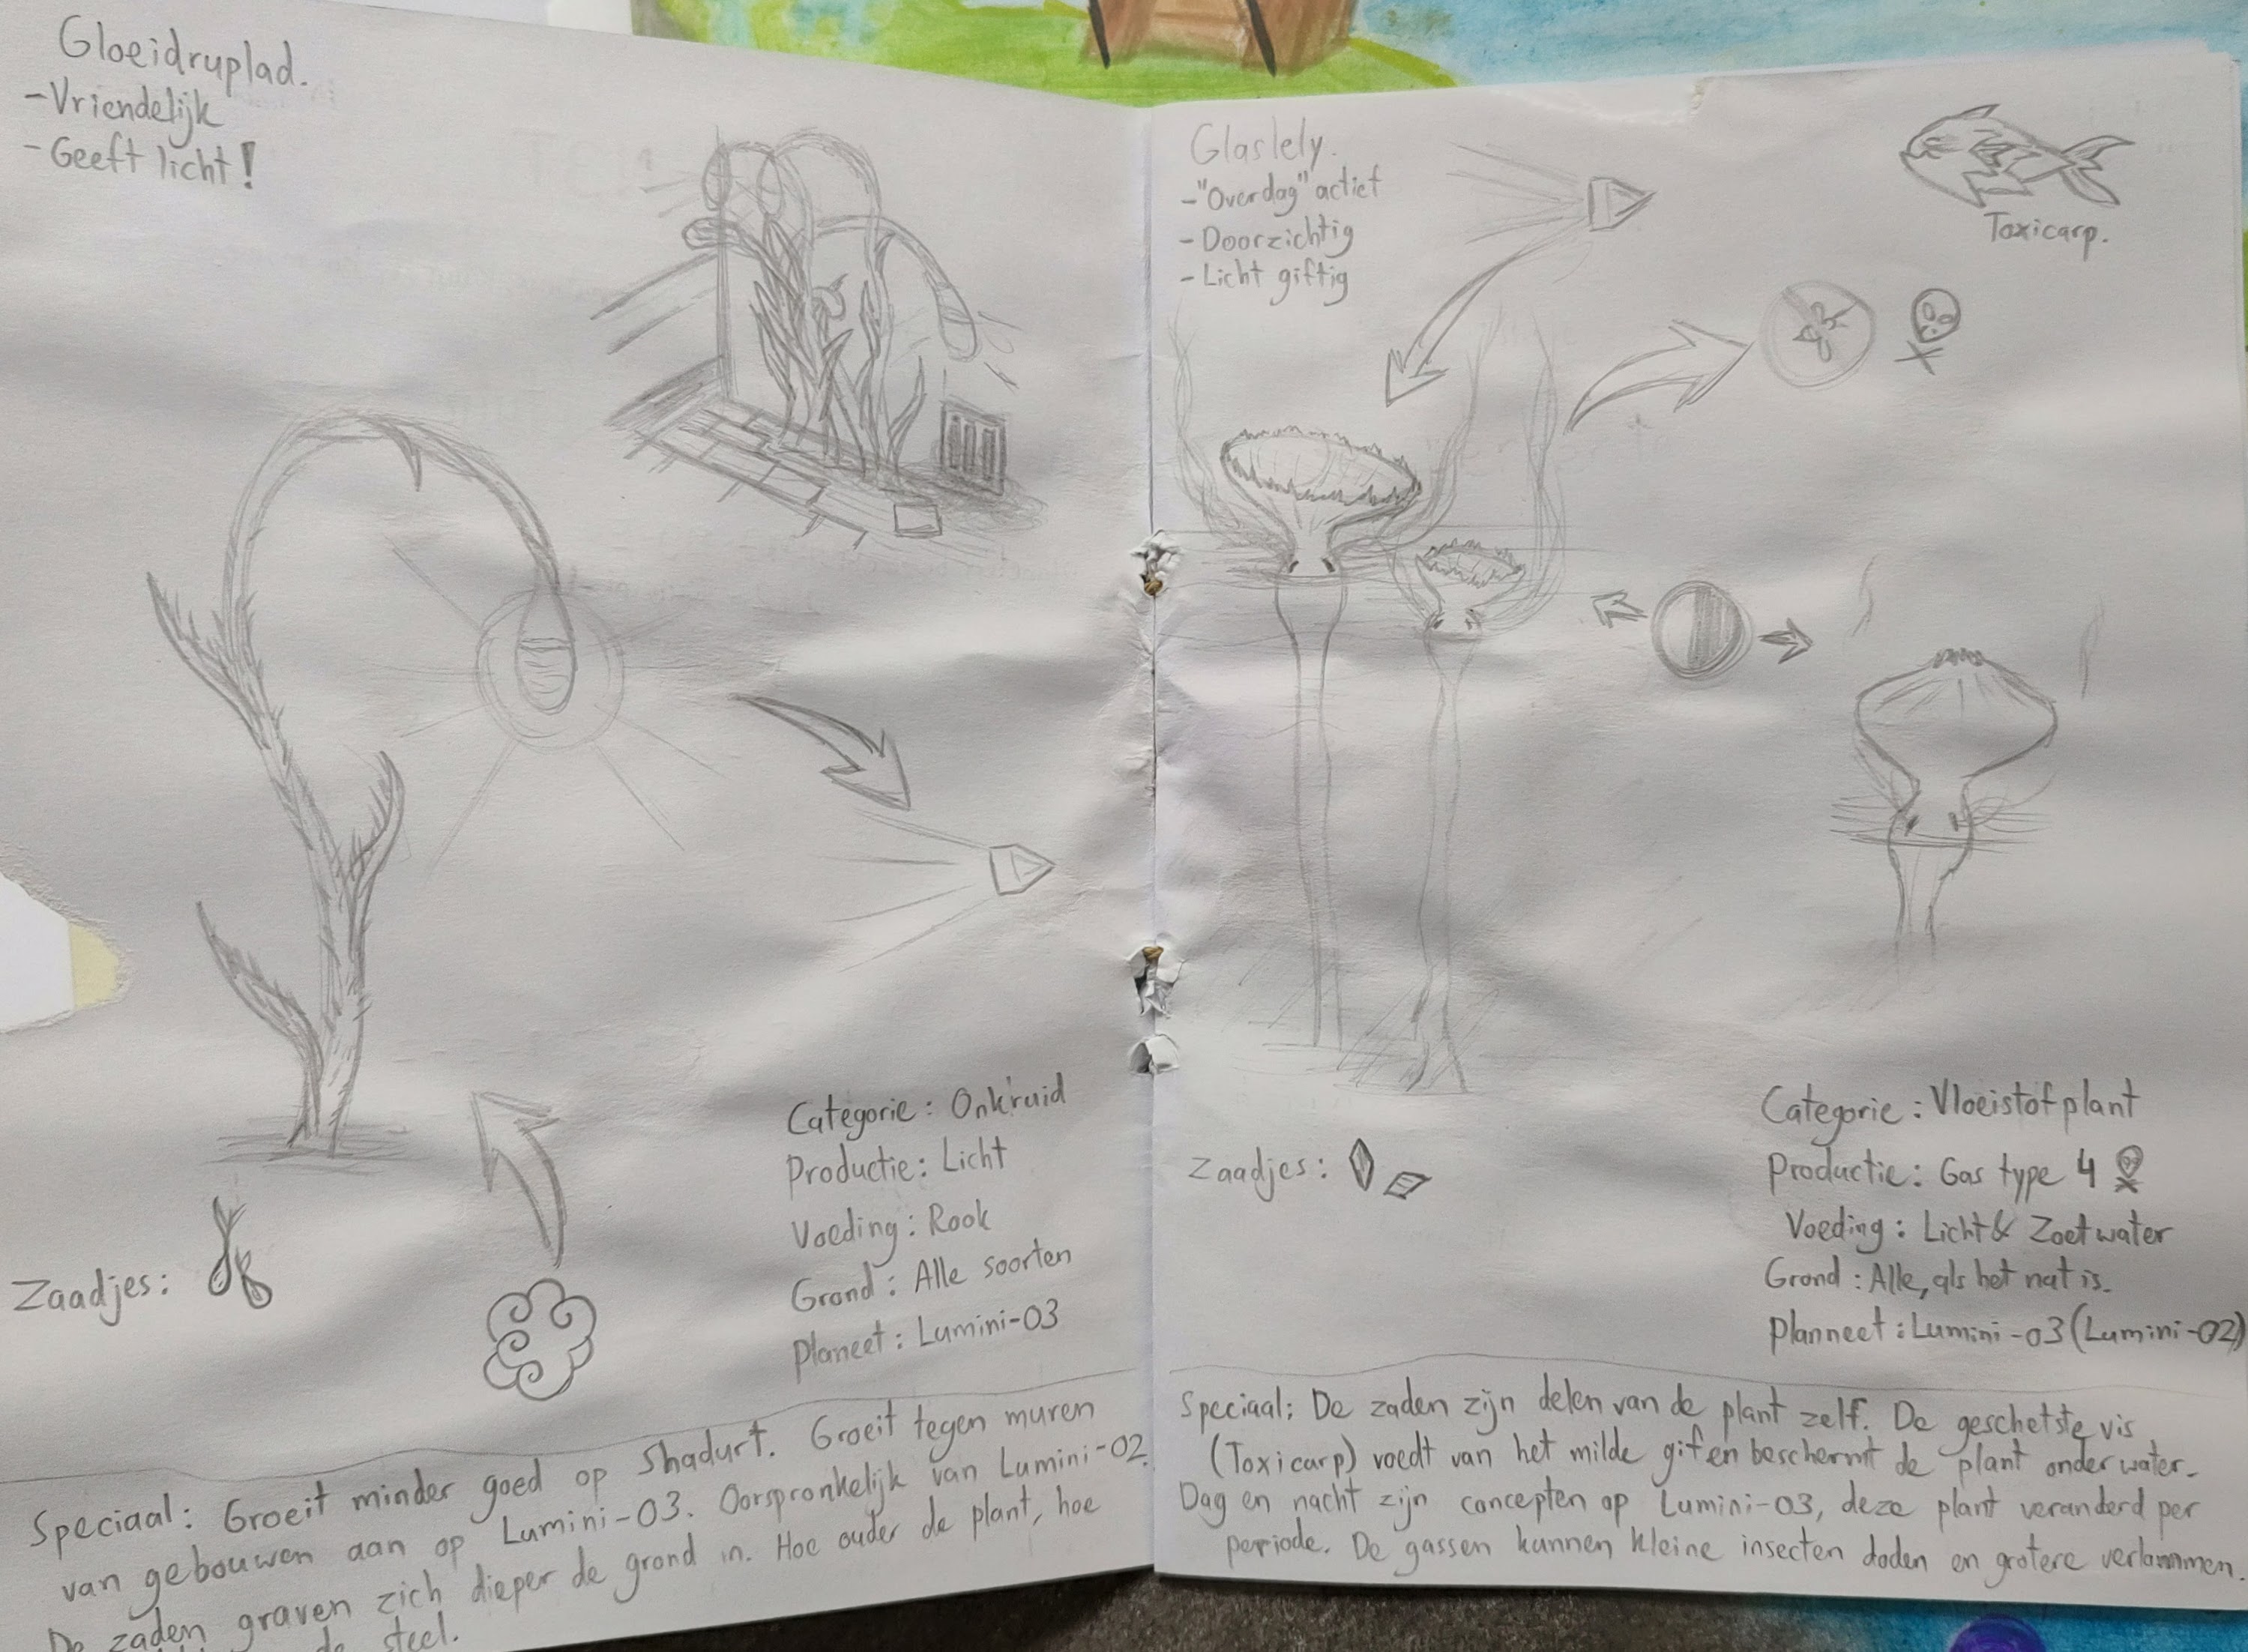 Gloeidruplad.
-Vriendelijk
-Geeft licht!
Zaadjes:
Categorie: Onkruid
Productie: Licht
Voeding: Rook
Grond: Alle soorten
Planeet: Lumini-03
Speciaal: Groeit minder goed op Shadurt. Groeit tegen muren
van gebouwen aan op Lumini-03. Oorspronkelijk van Lumini-02.
De zaden graven zich dieper de grond in. Hoe ouder de plant, hoe
de steel.
Glaslely.
-"Overdag" actief
-Doorzichtig
-Licht giftig
Toxicarp.
Zaadjes:
Categorie: Vloeistofplant
Productie: Gas type 4
Voeding: Licht & Zoetwater
Grond: Alle, als het nat is.
Planneet: Lumini-03 (Lumini-02)
Speciaal: De zaden zijn delen van de plant zelf. De geschetste vis
(Toxicarp) voedt van het milde gif en beschermt de plant onder water.
Dag en nacht zijn concepten op Lumini-03, deze plant veranderd per
periode. De gassen kunnen kleine insecten doden en grotere verlammen.